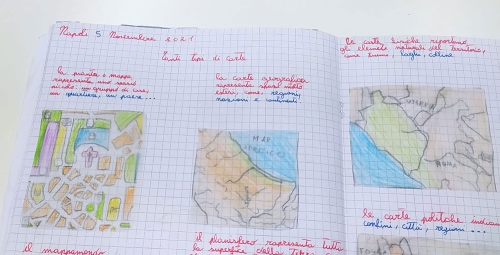 Napoli 5 Novembre 2021
Tanti tipi di carte
la pianta o mappa
rappresenta uno spazio
piccolo: un gruppo di case,
un quartiere, un paese...
la carta geografica
rappresenta spazi molto
estesi, come: regioni
nazioni e continenti
MAR
le carte fisiche riportano
gli elementi naturali del territorio,
come fiumi, laghi, colline
UMBRIA
ROMA
le carte politiche indicano
confini, città, regioni...
il mappamondo
il planisfero rappresenta tutta
la superficie della Terra